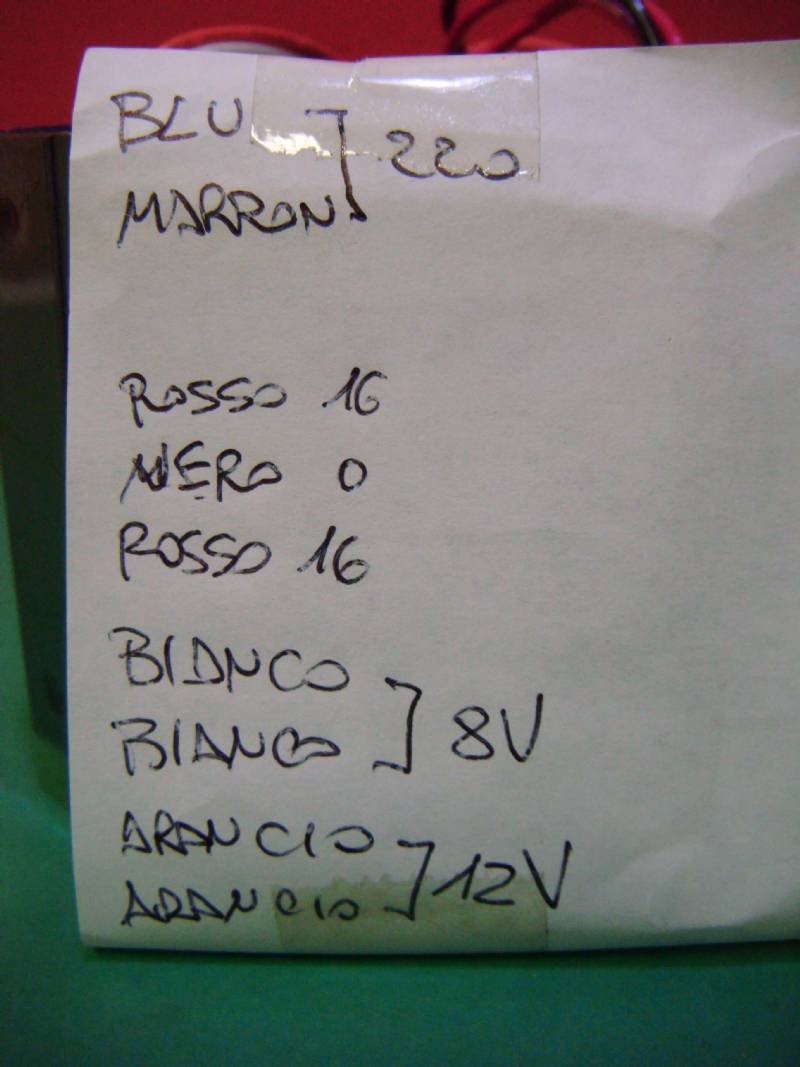 BLU
MARRON
] 220
ROSSO 16
NERO 0
ROSSO 16
BIANCO
BIANCO
] 8V
ARANCIO
ARANCIO
] 12V